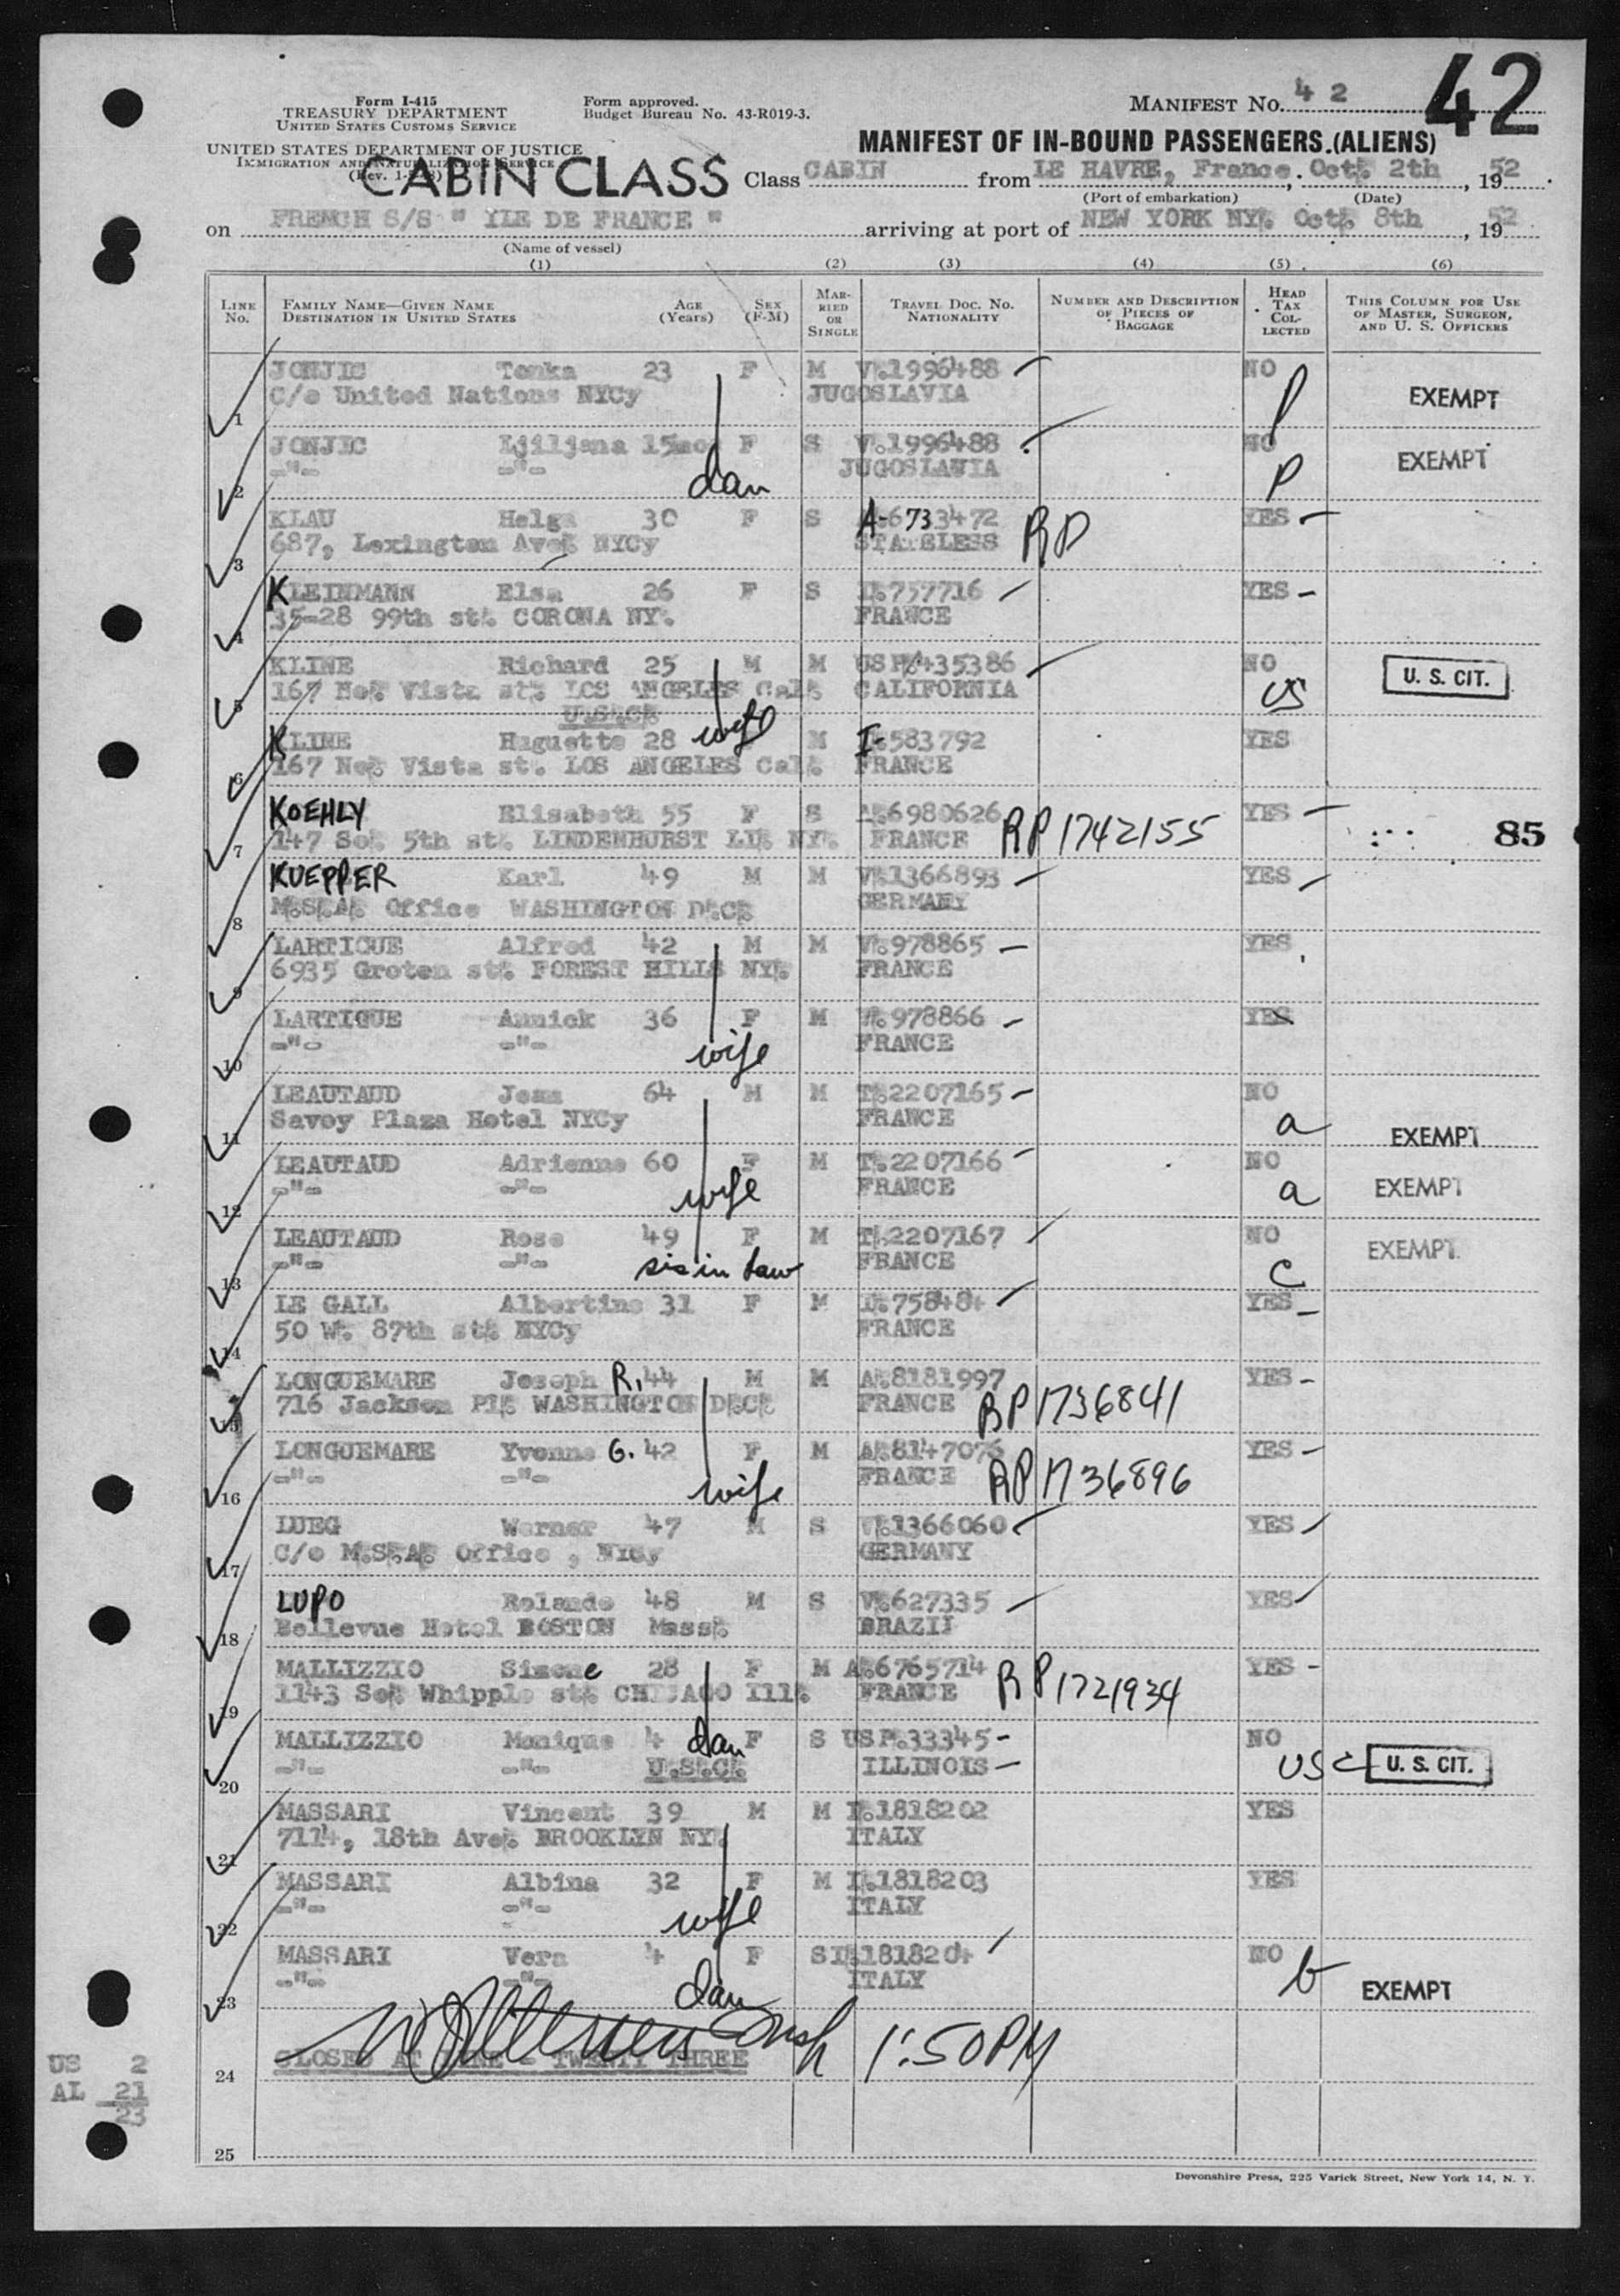 Form I-415
TREASURY DEPARTMENT
UNITED STATES CUSTOMS SERVICE
UNITED STATES DEPARTMENT OF JUSTICE
IMMIGRATION AND NATURALIZATION SERVICE
Form approved.
Budget Bureau No. 43-R019-3.
MANIFEST No. 42
42
MANIFEST OF IN-BOUND PASSENGERS.(ALIENS)
CABIN CLASS
Class CABIN from LE HAVRE, France, Oct. 2th, 1952
(Port of embarkation) (Date)
on FRENCH S/S " YLE DE FRANCE " arriving at port of NEW YORK NY. Oct. 8th, 1952
(Name of vessel)
(1) (2) (3) (4) (5) (6)
LINE No. FAMILY NAME—GIVEN NAME DESTINATION IN UNITED STATES AGE (Years) SEX (F-M) MARRIED OR SINGLE TRAVEL DOC. NO. NATIONALITY NUMBER AND DESCRIPTION OF PIECES OF BAGGAGE HEAD TAX COLLECTED THIS COLUMN FOR USE OF MASTER, SURGEON, AND U. S. OFFICERS
JONJIC Tonka 23 F M V.1996488 NO
1 C/o United Nations NYCy JUGOSLAVIA P EXEMPT
JONJIC Ljiljana 15mos F S V.1996488 NO
2 -"- -"- dau JUGOSLAVIA P EXEMPT
KLAU Helga 30 F S A-6733472 YES
3 687, Lexington Ave. NYCy STATELESS RP
KLEINMANN Elsa 26 F S I.757716 YES
4 35-28 99th st. CORONA NY. FRANCE
KLINE Richard 25 M M USP.435386 NO
5 167 No. Vista st. LOS ANGELES Cal. CALIFORNIA US U. S. CIT.
U.S.C.
KLINE Huguette 28 wife M I-583792 YES
6 167 No. Vista st. LOS ANGELES Cal. FRANCE
KOEHLY Elisabeth 55 F S A.6980626 YES
7 147 So. 5th st. LINDENHURST LI. NY. FRANCE RP 1742155 85
KUEPPER Karl 49 M M V.1366893 YES
8 M.S.A. Office WASHINGTON D.C. GERMANY
LARTIGUE Alfred 42 M M V.978865 YES
9 6935 Groton st. FOREST HILLS NY. FRANCE
LARTIGUE Annick 36 F M V.978866 YES
10 -"- -"- wife FRANCE
LEAUTAUD Jean 64 M M T.2207165 NO
11 Savoy Plaza Hotel NYCy FRANCE a EXEMPT
LEAUTAUD Adrienne 60 F M T.2207166 NO
12 -"- -"- wife FRANCE a EXEMPT
LEAUTAUD Rose 49 F M T.2207167 NO
13 -"- -"- sis in law FRANCE c EXEMPT
LE GALL Albertine 31 F M I.758484 YES
14 50 W. 87th st. NYCy FRANCE
LONGUEMARE Joseph R. 44 M M A.8181997 YES
15 716 Jackson Pl. WASHINGTON D.C. FRANCE RP 1736841
LONGUEMARE Yvonne G. 42 F M A.8147076 YES
16 -"- -"- wife FRANCE RP 1736896
LUEG Werner 47 M S V.1366060 YES
17 C/o M.S.A. Office , NYCy GERMANY
LUPO Rolando 48 M S V.627335 YES
18 Bellevue Hotel BOSTON Mass. BRAZIL
MALLIZZIO Simone 28 F M A.6765714 YES
19 1143 So. Whipple st. CHICAGO Ill. FRANCE RP 1721934
MALLIZZIO Monique 4 dau F S USP.33345 NO
20 -"- -"- U.S.C. ILLINOIS USC U. S. CIT.
MASSARI Vincent 39 M M I.1818202 YES
21 7114, 18th Ave. BROOKLYN NY. ITALY
MASSARI Albina 32 F M I.1818203 YES
22 -"- -"- wife ITALY
MASSARI Vera 4 F S I.1818204 NO
23 -"- -"- dau ITALY b EXEMPT
24 CLOSED AT LINE - TWENTY THREE 1:50PM
US 2
AL 21
23
25
Devonshire Press, 225 Varick Street, New York 14, N. Y.